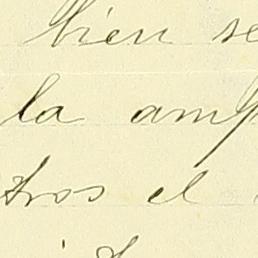 bien se
la amp
tros el